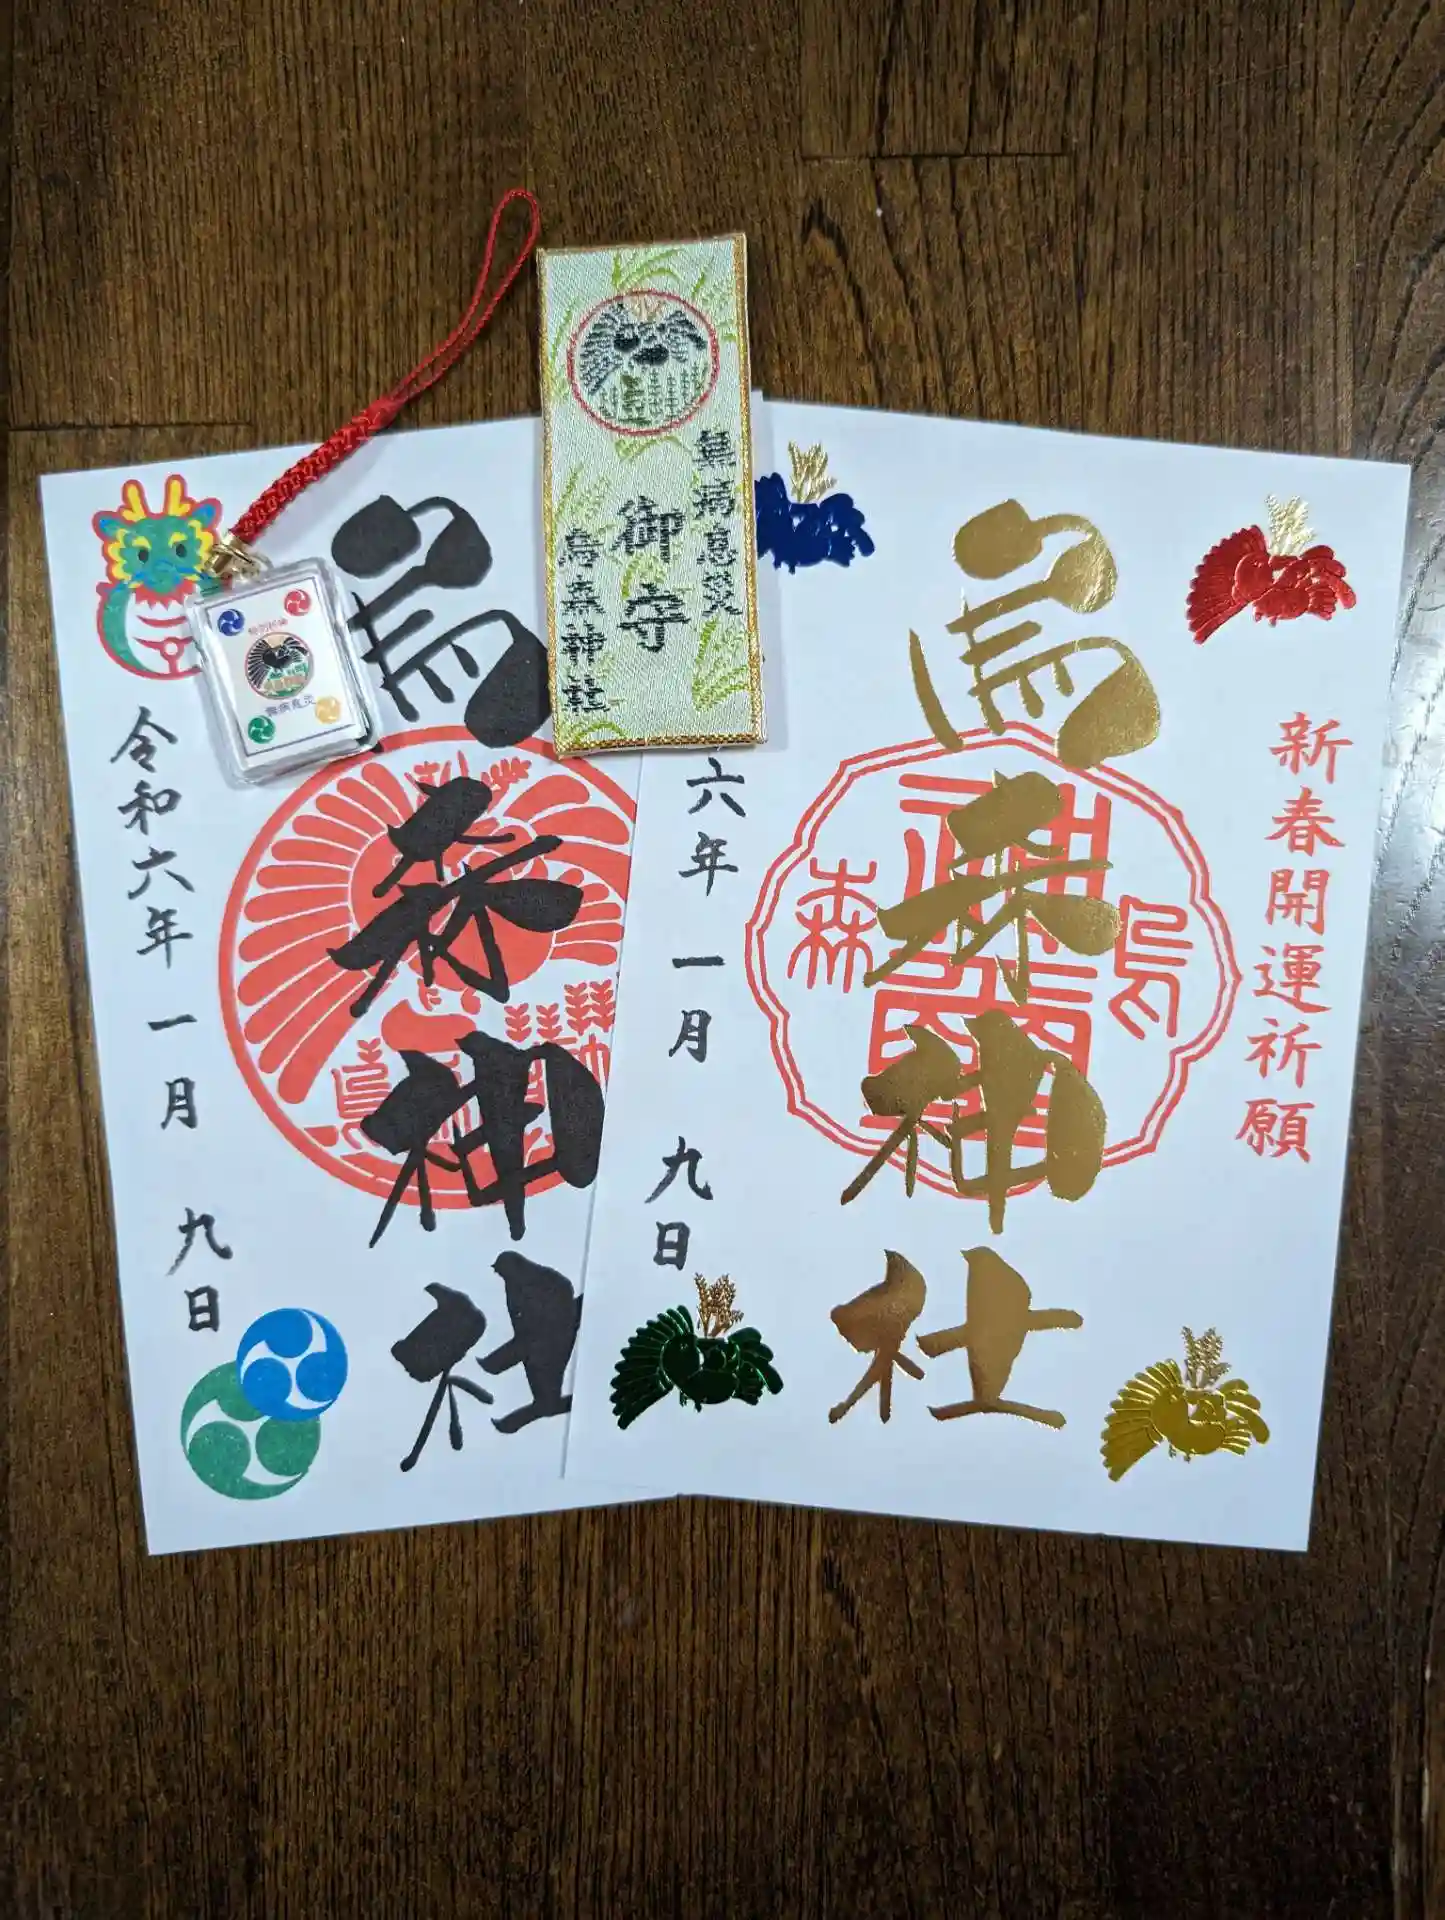 新春開運祈願
烏森神社
六年一月九日
無病息災
御守
烏森神社
烏森神社
令和六年一月九日
烏
森